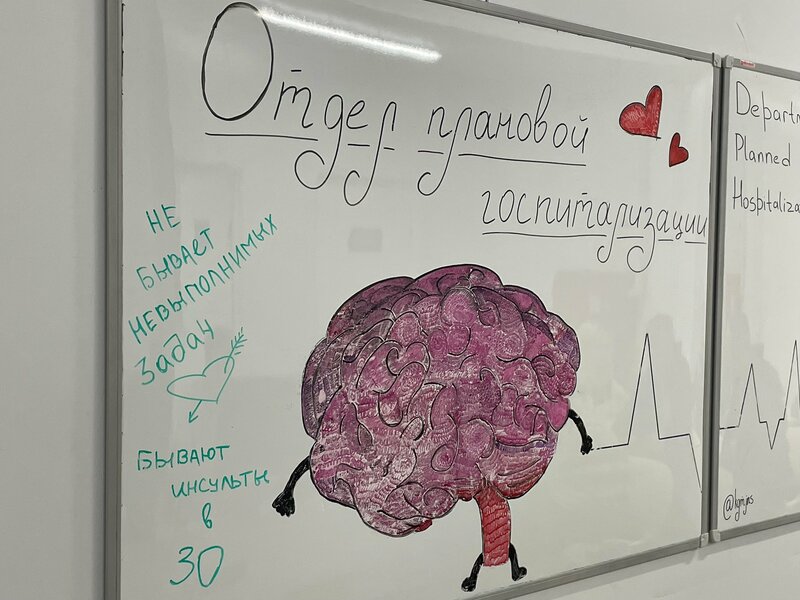 Отдел плановой
госпитализации
НЕ
БЫВАЕТ
НЕВЫПОЛНИМЫХ
Задач
БЫВАЮТ
инсульты
в
30
Departm
Planned
Hospitaliza